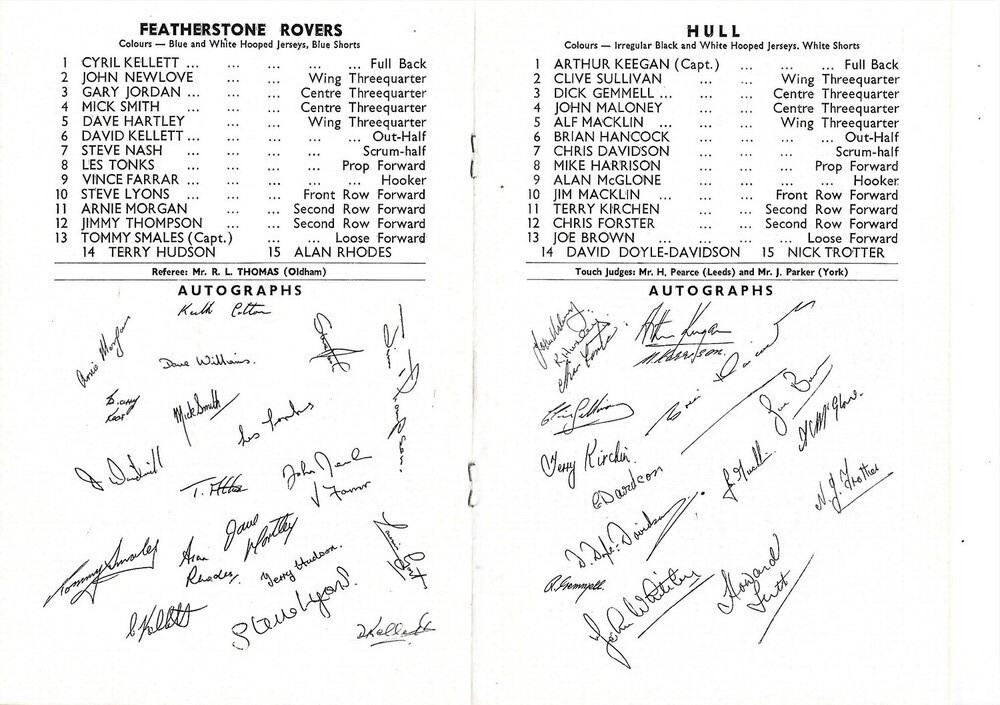 FEATHERSTONE ROVERS
Colours — Blue and White Hooped Jerseys, Blue Shorts
1 CYRIL KELLETT ... ... ... ... Full Back
2 JOHN NEWLOVE ... ... Wing Threequarter
3 GARY JORDAN ... ... ... Centre Threequarter
4 MICK SMITH ... ... Centre Threequarter
5 DAVE HARTLEY ... ... Wing Threequarter
6 DAVID KELLETT ... ... ... ... Out-Half
7 STEVE NASH ... ... ... Scrum-half
8 LES TONKS ... ... ... Prop Forward
9 VINCE FARRAR ... ... ... ... Hooker
10 STEVE LYONS ... ... Front Row Forward
11 ARNIE MORGAN ... ... Second Row Forward
12 JIMMY THOMPSON ... ... Second Row Forward
13 TOMMY SMALES (Capt.) ... ... Loose Forward
14 TERRY HUDSON 15 ALAN RHODES
Referee: Mr. R. L. THOMAS (Oldham)
AUTOGRAPHS
Keith Cotton
Arnie Morgan
Dave Williams.
Barry
Mick Smith
Les Tonks
John Newlove
V Farrar
Dave
Hartley
Tommy Smales
Alan
Rhodes.
Terry Hudson.
C Kellett
Steve Lyons.
D Kellett
HULL
Colours — Irregular Black and White Hooped Jerseys. White Shorts
1 ARTHUR KEEGAN (Capt.) ... ... Full Back
2 CLIVE SULLIVAN ... ... Wing Threequarter
3 DICK GEMMELL ... ... ... Centre Threequarter
4 JOHN MALONEY ... ... Centre Threequarter
5 ALF MACKLIN ... ... ... Wing Threequarter
6 BRIAN HANCOCK ... ... ... Out-Half
7 CHRIS DAVIDSON ... ... ... Scrum-half
8 MIKE HARRISON ... ... Prop Forward
9 ALAN McGLONE ... ... ... Hooker
10 JIM MACKLIN ... ... ... Front Row Forward
11 TERRY KIRCHEN ... ... Second Row Forward
12 CHRIS FORSTER ... ... Second Row Forward
13 JOE BROWN ... ... ... ... Loose Forward
14 DAVID DOYLE-DAVIDSON 15 NICK TROTTER
Touch Judges: Mr. H. Pearce (Leeds) and Mr. J. Parker (York)
AUTOGRAPHS
Arthur Keegan
M. Harrison.
Clive Sullivan
Joe Brown
A McGlone.
Terry Kirchin.
C Davidson
N. J. Trotter
D. Doyle-Davidson.
R. Gemmell.
John Whiteley
Howard